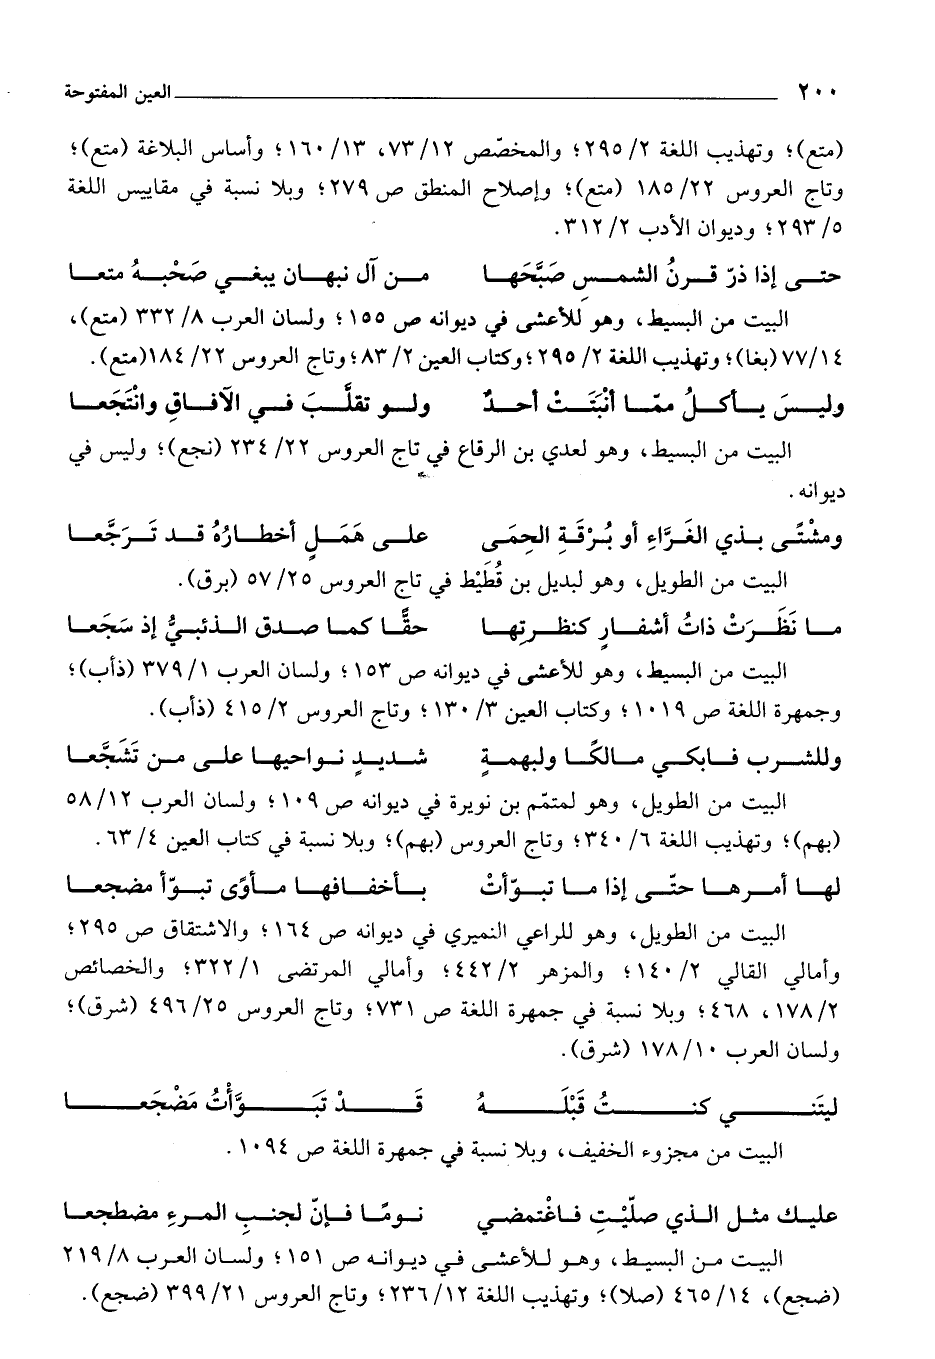 ٢٠٠ العين المفتوحة
(متع)؛ وتهذيب اللغة ٢/ ٢٩٥؛ والمخصّص ١٢/ ٧٣، ١٣/ ١٦٠؛ وأساس البلاغة (متع)؛
وتاج العروس ٢٢/ ١٨٥ (متع)؛ وإصلاح المنطق ص ٢٧٩؛ وبلا نسبة في مقاييس اللغة
٥/ ٢٩٣؛ وديوان الأدب ٢/ ٣١٢.
حتى إذا ذرّ قرنُ الشمسِ صَبَّحَها من آل نبهان يبغي صَحْبهُ متعا
البيت من البسيط، وهو للأعشى في ديوانه ص ١٥٥؛ ولسان العرب ٨/ ٣٣٢ (متع)،
١٤/ ٧٧ (بغا)؛ وتهذيب اللغة ٢/ ٢٩٥؛ وكتاب العين ٢/ ٨٣؛ وتاج العروس ٢٢/ ١٨٤(متع).
وليسَ يأكلُ ممّا أنْبَتَتْ أحدٌ ولو تقلَّبَ في الآفاقِ وانْتَجَعا
البيت من البسيط، وهو لعدي بن الرقاع في تاج العروس ٢٢/ ٢٣٤ (نجع)؛ وليس في
ديوانه.
ومشْتًى بذي الغَرَّاءِ أو بُرْقَةِ الحِمَى على هَمَلٍ أخطارُهُ قد تَرَجَّعا
البيت من الطويل، وهو لبديل بن قُطَيْط في تاج العروس ٢٥/ ٥٧ (برق).
ما نَظَرَتْ ذاتُ أشفارٍ كنظرتِها حقًّا كما صدق الذئبيُّ إذ سَجَعا
البيت من البسيط، وهو للأعشى في ديوانه ص ١٥٣؛ ولسان العرب ١/ ٣٧٩ (ذأب)؛
وجمهرة اللغة ص ١٠١٩؛ وكتاب العين ٣/ ١٣٠؛ وتاج العروس ٢/ ٤١٥ (ذأب).
وللشرب فابكي مالكًا ولبهمةٍ شديدٍ نواحيها على من تَشَجَّعا
البيت من الطويل، وهو لمتمّم بن نويرة في ديوانه ص ١٠٩؛ ولسان العرب ١٢/ ٥٨
(بهم)؛ وتهذيب اللغة ٦/ ٣٤٠؛ وتاج العروس (بهم)؛ وبلا نسبة في كتاب العين ٤/ ٦٣.
لها أمرها حتّى إذا ما تبوّأتْ بأخفافها مأوًى تبوّأ مضجعا
البيت من الطويل، وهو للراعي النميري في ديوانه ص ١٦٤؛ والاشتقاق ص ٢٩٥؛
وأمالي القالي ٢/ ١٤٠؛ والمزهر ٢/ ٤٤٢؛ وأمالي المرتضى ١/ ٣٢٢؛ والخصائص
٢/ ١٧٨، ٤٦٨؛ وبلا نسبة في جمهرة اللغة ص ٧٣١؛ وتاج العروس ٢٥/ ٤٩٦ (شرق)؛
ولسان العرب ١٠/ ١٧٨ (شرق).
ليتَني كنتُ قَبْلَهُ قَدْ تَبَوَّأْتُ مَضْجَعَا
البيت من مجزوء الخفيف، وبلا نسبة في جمهرة اللغة ص ١٠٩٤.
عليك مثل الذي صلّيْتِ فاغْتمضي نومًا فإنّ لجنبِ المرءِ مضطجعا
البيت من البسيط، وهو للأعشى في ديوانه ص ١٥١؛ ولسان العرب ٨/ ٢١٩
(ضجع)، ١٤/ ٤٦٥ (صلا)؛ وتهذيب اللغة ١٢/ ٢٣٦؛ وتاج العروس ٢١/ ٣٩٩ (ضجع).